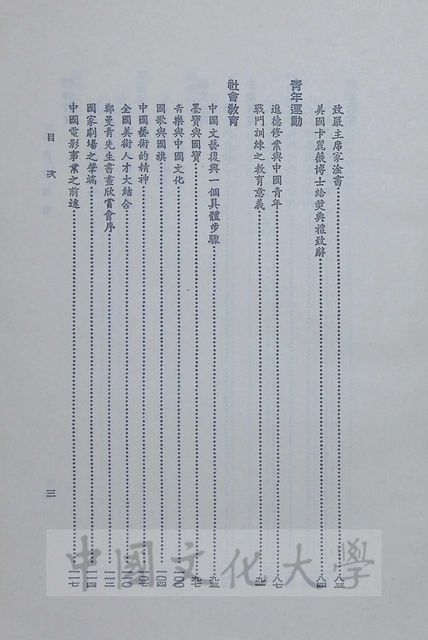 致嚴主席家淦書……八三
美國卡麗薇博士給奬典禮致辭……八四
青年運動
進德修業與中國青年……八七
戰鬥訓練之教育意義……九一
社會教育
中國文藝復興一個具體步驟……九三
墨寶與國寶……九七
音樂與中國文化……一〇〇
國歌與國旗……一〇四
中國藝術的精神……一〇七
全國美術人才大結合……一一〇
鄭曼青先生書畫欣賞會序……一一二
國家劇場之肇端……一一四
中國電影事業之前途……一一七
目次
三
中國文化大學